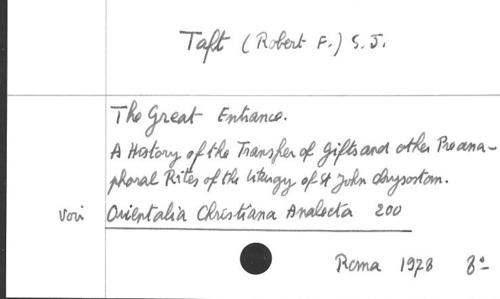 Taft (Robert F.) S.J.
The Great Entrance.
A History of the Transfer of Gifts and other Preana-
phoral Rites of the Liturgy of St John Chrysostom.
Voir Orientalia Christiana Analecta 200
Roma 1978 8°